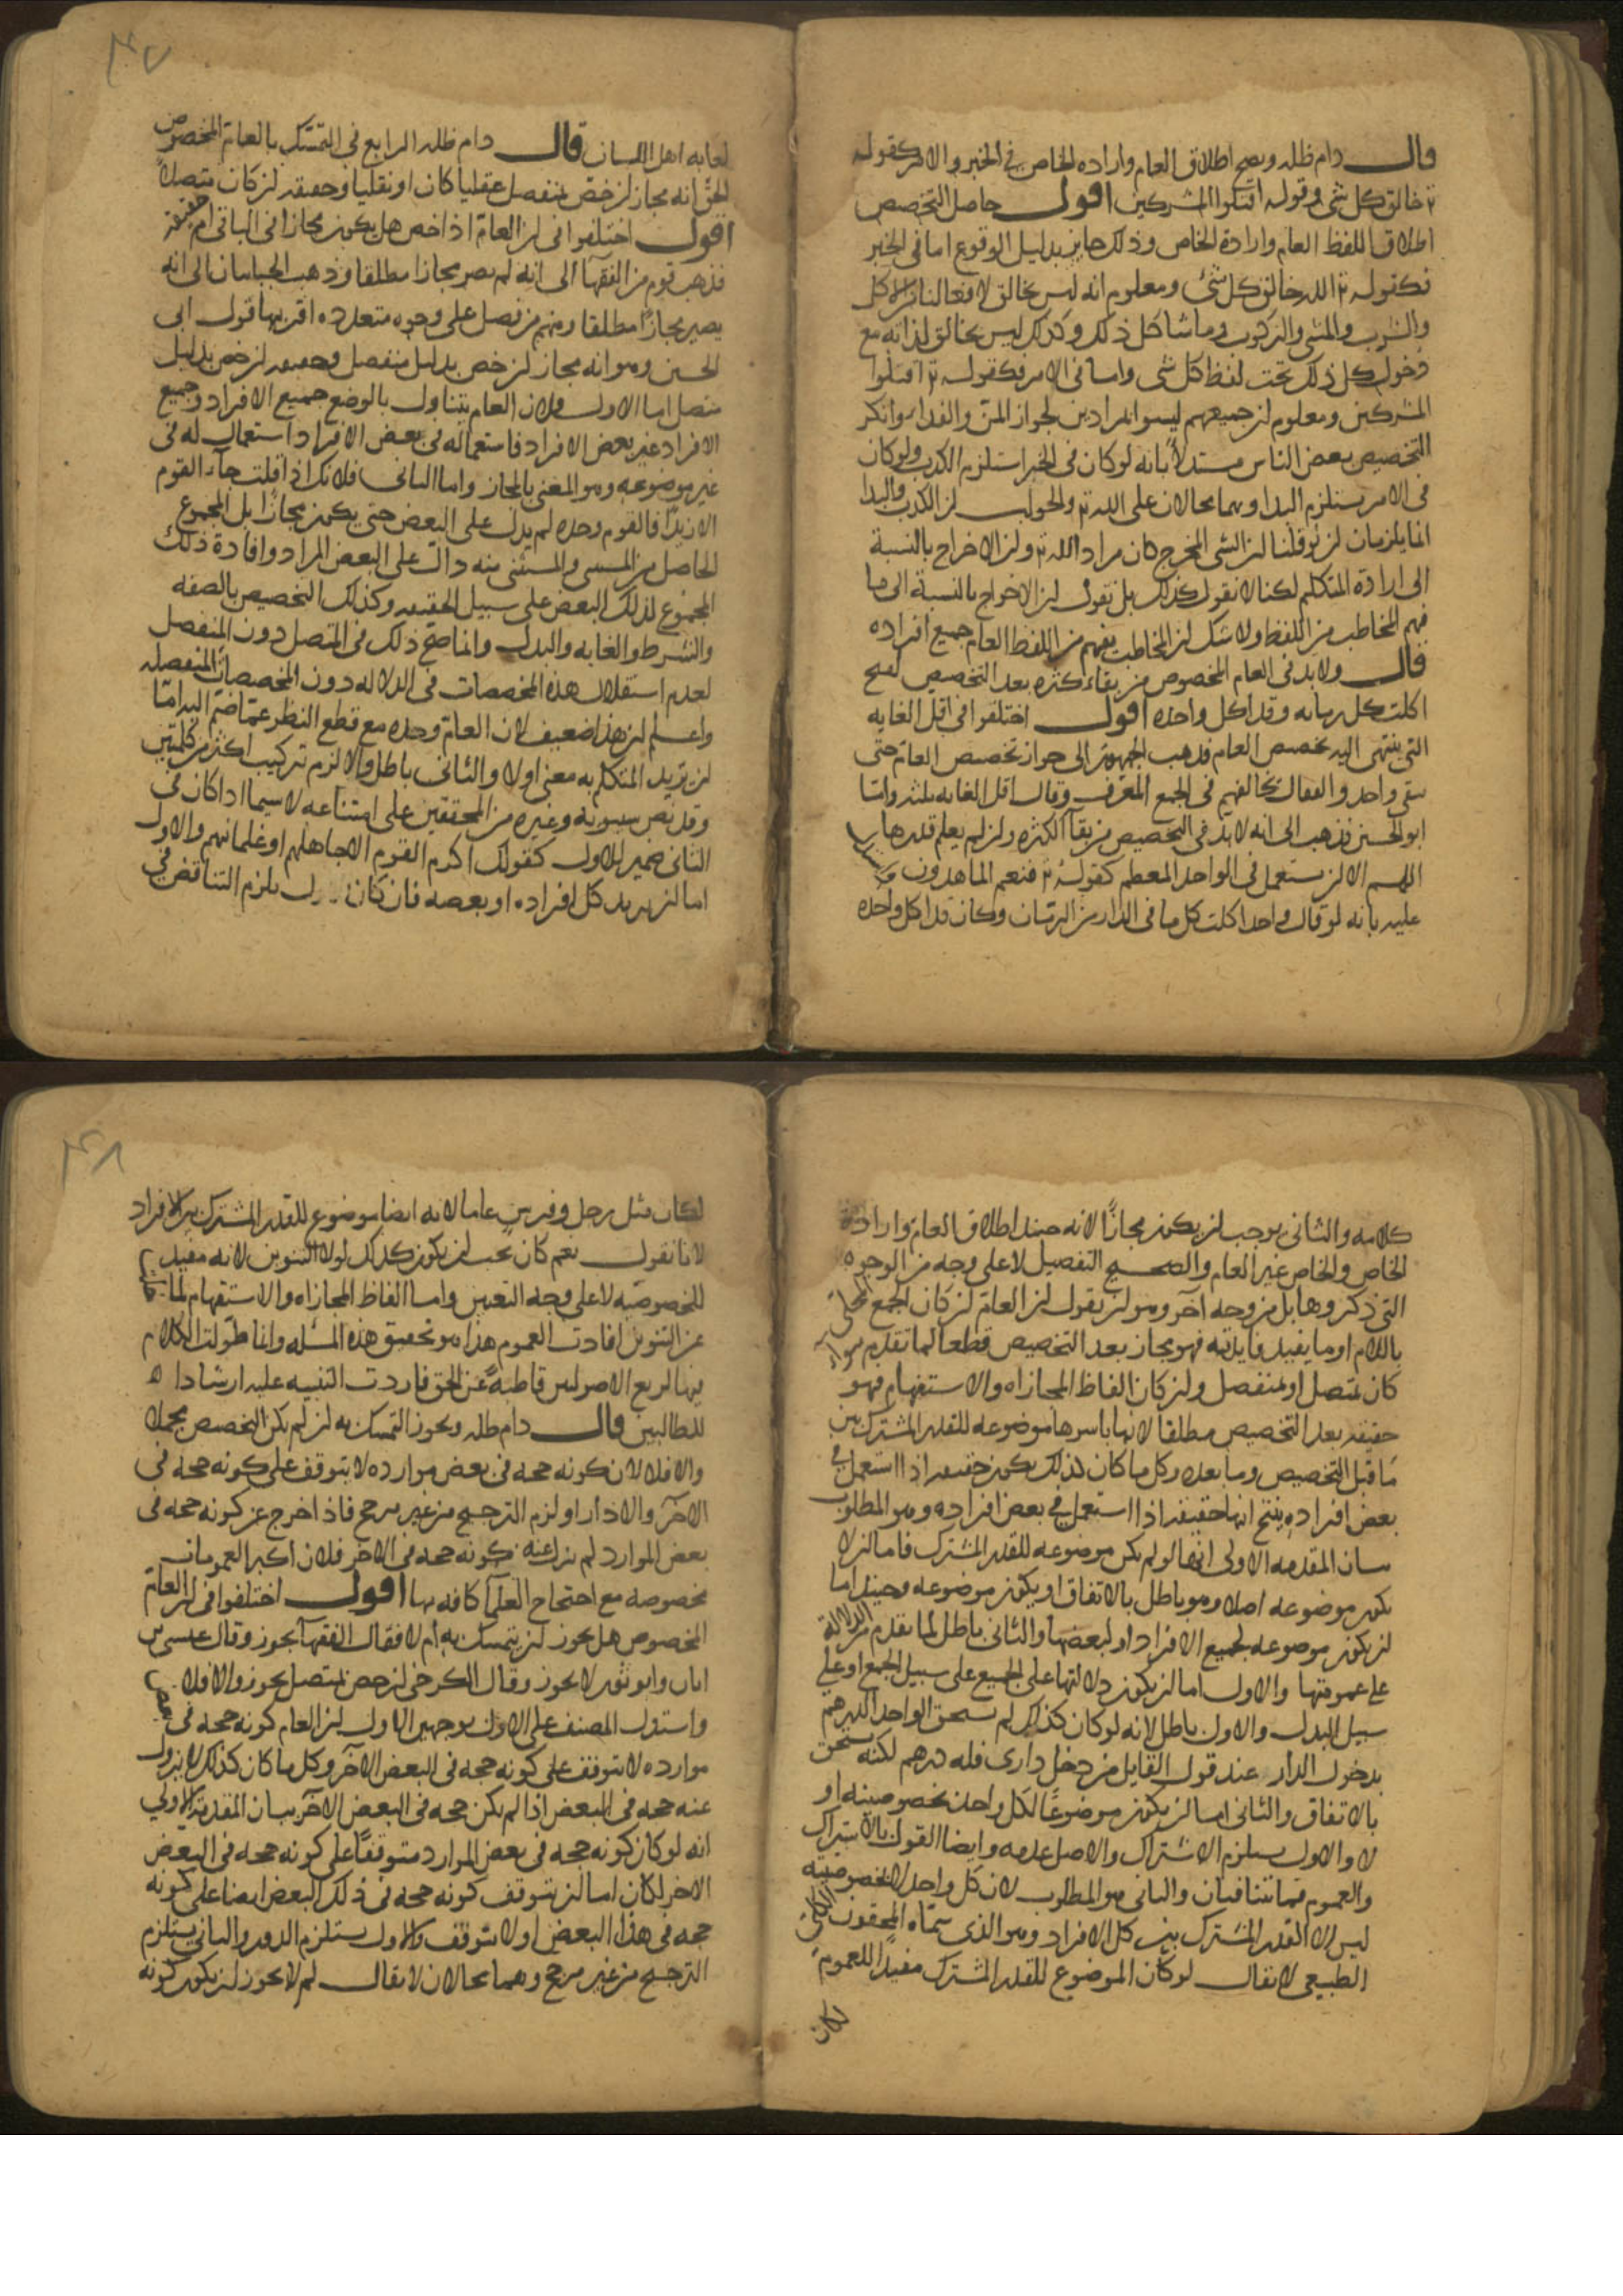 قال دام ظله ويصح اطلاق العام وارادة الخاص في الخبر والامر كقوله
تع خالق كل شي وقوله اقتلوا المشركين اقول حاصل التخصيص
اطلاق اللفظ العام وارادة الخاص وذلك جايز بدليل الوقوع اما في الخبر
فكقوله تع الله خالق كل شئ ومعلوم انه ليس بخالق لافعالنا من الاكل
والشرب والمشي والركوب وما شاكل ذلك وكذلك ليس بخالق لذاته مع
دخول كل ذلك تحت لفظ كل شي واما في الامر فكقوله تع اقتلوا
المشركين ومعلوم ان جميعهم ليسوا مرادين لجواز المن والفداء وانكر
التخصيص بعض الناس مستدلا بانه لو كان في الخبر استلزم الكذب ولو كان
في الامر يستلزم البدا وهما محالان على الله تع والجواب ان الكذب والبدا
انما يلزمان ان لو قلنا ان الشي المخرج كان مراد الله تع وان الاخراج بالنسبة
الى ارادة المتكلم لكنا لا نقول كذلك بل نقول ان الاخراج بالنسبة الى ما
فهم المخاطب من اللفظ ولا شك ان المخاطب يفهم من اللفظ العام جميع افراده
قال ولا بد في العام المخصوص من بقاء كثرة بعد التخصيص لقبح
اكلت كل رمانه وقد اكل واحده اقول اختلفوا في اقل الغايه
التي ينتهي اليه تخصيص العام فذهب الجمهور الى جواز تخصيص العام حتى
يبقى واحد والقفال يخالفهم في الجمع المعرف وقال اقل الغايه ثلثه واما
ابو الحسين فذهب الى انه لا بد في التخصيص من بقاء الكثره وان لم يعلم قدرها
اللهم الا ان يستعمل في الواحد المعظم كقوله تع فنعم الماهدون
عليه بانه لو قال واحد اكلت كل ما في الدار من الرمان وكان قد اكل واحده
لعابه اهل اللسان قال دام ظله الرابع في التمسك بالعام المخصوص
الحق انه مجاز ان خص بمنفصل عقليا كان او نقليا وحقيقه ان كان متصلا
اقول اختلفوا في ان العام اذا خص هل يكون مجازا في الباقي ام حقيقة
فذهب قوم من الفقهاء الى انه لم يصر مجازا مطلقا وذهب الجبائيان الى انه
يصير مجازا مطلقا ومنهم من فصل على وجوه متعدده اقربها قول ابي
الحسين وهو انه مجاز ان خص بدليل منفصل وحقيقه ان خص بدليل
متصل اما الاول فلان العام يتناول بالوضع جميع الافراد وجميع
الافراد غير بعض الافراد فاستعماله في بعض الافراد استعمال له في
غير موضوعه وهو المعني بالمجاز واما الثاني فلانك اذا قلت جاء القوم
الا زيدا فالقوم وحده لم يدل على البعض حتى يكون مجازا بل المجموع
الحاصل من المستثنى والمستثنى منه دال على البعض المراد وافادة ذلك
المجموع لذلك البعض على سبيل الحقيقه وكذلك التخصيص بالصفه
والشرط والغايه والبدل وانما صح ذلك في المتصل دون المنفصل
لعدم استقلال هذه المخصصات في الدلاله دون المخصصات المنفصله
واعلم ان هذا ضعيف لان العام وحده مع قطع النظر عما ضم اليه اما
ان يريد المتكلم به معنى اولا والثاني باطل والا لزم تركيب اكثر من كلمتين
وقد نص سيبويه وغيره من المحققين على امتناعه لا سيما اذا كان في
الثاني ضمير للاول كقولك اكرم القوم الا جاهلهم او غلمانهم والاول
اما ان يريد كل افراده او بعضه فان كان يلزم التناقض في
كلامه والثاني يوجب ان يكون مجازا لانه حينئذ اطلاق العام وارادة
الخاص والخاص غير العام والصحيح التفصيل لا على وجه من الوجوه
التي ذكروها بل من وجه آخر وهو ان يقول ان العام ان كان الجمع المحلى
باللام او ما يفيد فايدته فهو مجاز بعد التخصيص قطعا لما تقدم سواء
كان بمتصل او بمنفصل وان كان الفاظ المجازاه والاستفهام فهو
حقيقه بعد التخصيص مطلقا لانها باسرها موضوعه للقدر المشترك بين
ما قبل التخصيص وما بعده وكل ما كان كذلك يكون حقيقه اذا استعمل في
بعض افراده ينتج انها حقيقه اذا استعمل في بعض افراده وهو المطلوب
بيان المقدمه الاولى انها لو لم يكن موضوعه للقدر المشترك فاما ان لا
يكون موضوعه اصلا وهو باطل بالاتفاق او يكون موضوعه وحينئذ اما
ان يكون موضوعه لجميع الافراد او لبعضها والثاني باطل لما تقدم من الدلالة
على عموميتها والاول اما ان يكون دلالتها على الجميع على سبيل الجمع او على
سبيل البدل والاول باطل لانه لو كان كذلك لم يستحق الواحد الدرهم
بدخول الدار عند قول القايل من دخل داري فله درهم لكنه يستحق
بالاتفاق والثاني اما ان يكون موضوعا لكل واحد بخصوصيته او
لا والاول يستلزم الاشتراك والاصل عدمه وايضا القول بالاشتراك
والعموم مما يتنافيان والثاني هو المطلوب لان كل واحد لا بخصوصيته
ليس الا القدر المشترك بين كل الافراد وهو الذي سماه المحققون الكلي
الطبيعي لا يقال لو كان الموضوع للقدر المشترك مفيدا للعموم
لكان
لكان مثل رجل وفرس عاما لانه ايضا موضوع للقدر المشترك بين الافراد
لانا نقول نعم كان يجب ان يكون كذلك لولا التنوين لانه مفيد
للخصوصيه لا على وجه التعيين واما الفاظ المجازاه والاستفهام لما
عن التنوين افادت العموم هذا هو تحقيق هذه المسئله وانما طولت الكلام
فيها لزيغ الاصوليين قاطبة عن الحق فاردت التنبيه عليه ارشادا
للطالبين قال دام ظله ويجوز التمسك به ان لم يكن التخصيص بمجمل
والا فلا لان كونه حجه في بعض موارده لا يتوقف على كونه حجه في
الآخر والا دار او لزم الترجيح من غير مرجح فاذا خرج عن كونه حجه في
بعض الموارد لم يزل عنه كونه حجه في الآخر فلان اكثر العمومات
مخصوصه مع احتجاج العلماء كافه بها اقول اختلفوا في ان العام
المخصوص هل يجوز ان يتمسك به ام لا فقال الفقهاء يجوز وقال عيسى بن
ابان وابو ثور لا يجوز وقال الكرخي ان خص بمتصل يجوز والا فلا
واستدل المصنف على الاول بوجهين الاول ان العام كونه حجه في بعض
موارده لا يتوقف على كونه حجه في البعض الآخر وكل ما كان كذلك لا يزول
عنه حجه في البعض اذا لم يكن حجه في البعض الآخر بيان المقدمة الاولي
انه لو كان كونه حجه في بعض الموارد متوقفا على كونه حجه في البعض
الاخر لكان اما ان يتوقف كونه حجه في ذلك البعض ايضا على كونه
حجه في هذا البعض او لا يتوقف والاول يستلزم الدور والثاني يستلزم
الترجيح من غير مرجح وهما محالان لا يقال لم لا يجوز ان يكون كونه